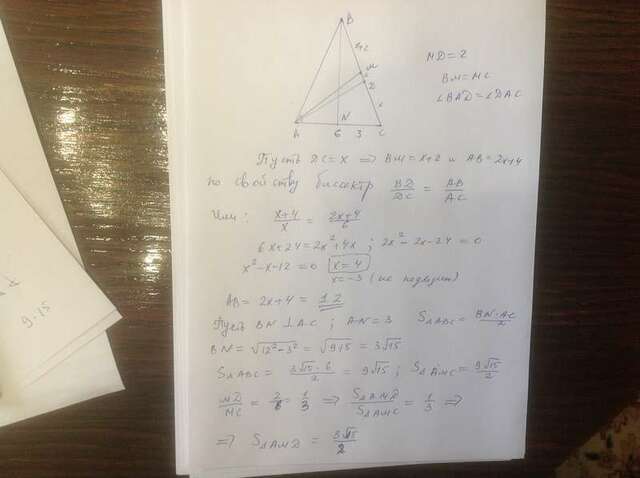 B
4
M
2
D
x
A
N
6
3
C
MD=2
BM=MC
∠BAD=∠DAC
Пусть DC=x ⇒ BM=x+2 и AB=2x+4
по свойству биссектр BD/DC = AB/AC
Или: x+4/x = 2x+4/6
6x+24=2x²+4x ; 2x²-2x-24=0
x²-x-12=0 x=4
x=-3 (не подходит)
AB=2x+4=12
Пусть BN⊥AC ; AN=3 S△ABC = BN·AC/2
BN=√12²-3² = √9·15 = 3√15
S△ABC = 3√15·6/2 = 9√15 ; S△AMC = 9√15/2
MD/MC = 2/6 = 1/3 ⇒ S△AMD/S△AMC = 1/3 ⇒
⇒ S△AMD = 3√15/2
9·15